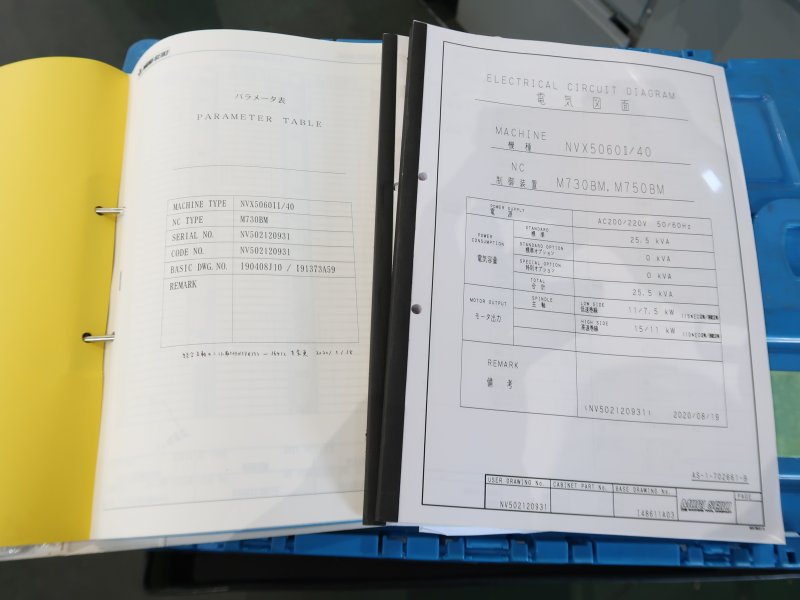 MORI SEIKI
パラメータ表
PARAMETER TABLE
MACHINE TYPE NVX5060II/40
NC TYPE M730BM
SERIAL NO. NV502120931
CODE NO. NV502120931
BASIC DWG. NO. I90408J10 / I91373A59
REMARK
ELECTRICAL CIRCUIT DIAGRAM
電気図面
MACHINE
機種 NVX5060Ⅱ/40
NC
制御装置 M730BM, M750BM
POWER SUPPLY
電源 AC200/220V 50/60Hz
POWER CONSUMPTION
電気容量
STANDARD
標準 25.5 kVA
STANDARD OPTION
標準オプション 0 kVA
SPECIAL OPTION
特別オプション 0 kVA
TOTAL
合計 25.5 kVA
MOTOR OUTPUT
モータ出力
SPINDLE
主軸
LOW SIDE
低速巻線 11/7.5 kW
HIGH SIDE
高速巻線 15/11 kW
REMARK
備考
(NV502120931) 2020/08/19
AS-1-702661-B
USER DRAWING No. CABINET PART No. BASE DRAWING No. PAGE
NV502120931 I48611A03 MORI SEIKI